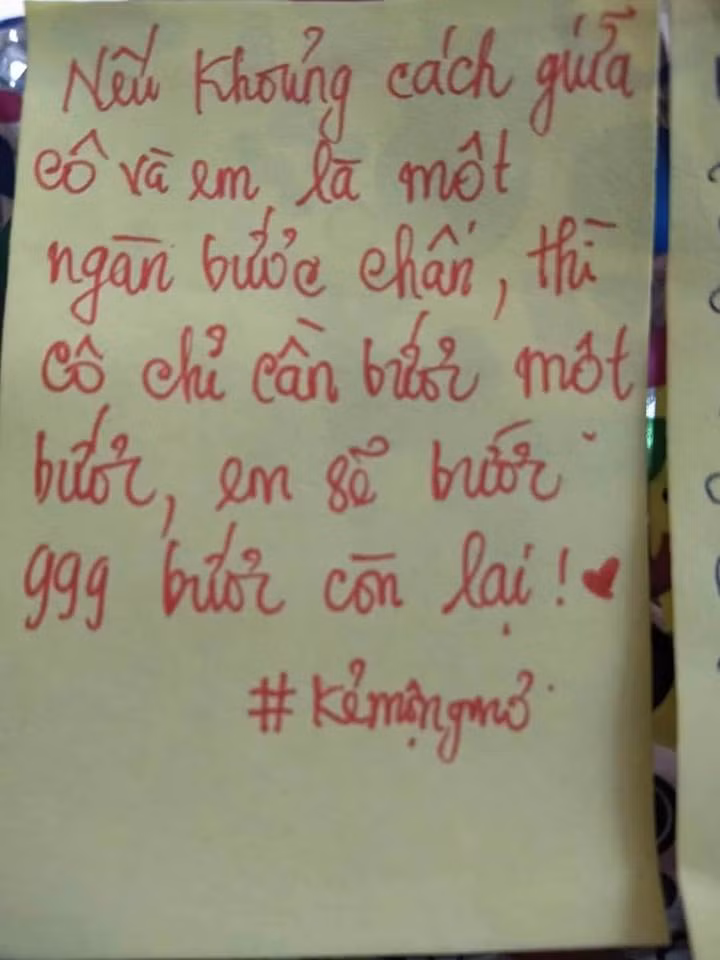 Nếu Khoảng cách giữa
cô và em là một
ngàn bước chân, thì
cô chỉ cần bước một
bước, em sẽ bước
999 bước còn lại!
#Kẻmộngmơ